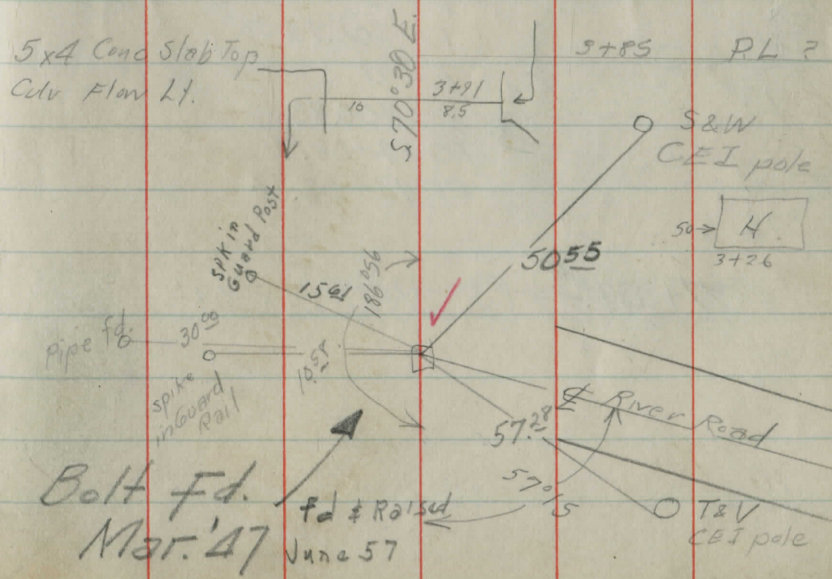 5x4 Conc Slab Top
Culv Flow Lt.
10
S 70° 30 E.
3+91
8.5
3+85
P.L ?
S&W
CEI pole
50
H
3+26
spk in
Guard Post
1561
186°56
5055
Pipe fd
30⁰⁰
spike
in Guard
Rail
10.58
℄ River Road
57.28
57°15
T&V
CEI pole
Bolt Fd.
Mar. '47
fd & Raised
June 57